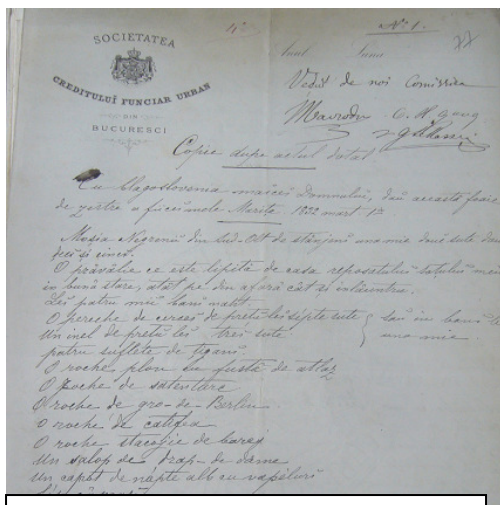 SOCIETATEA
CREDITULUI FUNCIAR URBAN
DIN
BUCURESCI
No 1.
Anul Luna
Vedut de noi Comisiea
Mavrodu
Copie dupe actul dotal
Cu blagoslovenia maicei Domnului, dau această foaie
de zestre a fiicei mele Marița 1832 mart 1
Moșia Negrenii din Sud-Olt de stânjeni una mie două sute
deci și cinci.
O prăvălie ce este lipită de casa reposatului tatălui meu
în bună stare, atât pe din afară cât și înlăuntru.
Lei patru mii bani
O pereche de cercei de prețu lei șăpte sute
Un inel de prețu lei trei sute
sau în bani
una mie.
patru suflete de țigani.
O roche plon cu fustă de atlaz
O roche de
O roche de gro-de-Berlin
O roche de catifea
O roche stacojie de barej
Un salop de drap-de-dame
Un capot de nópte alb cu vapeluri